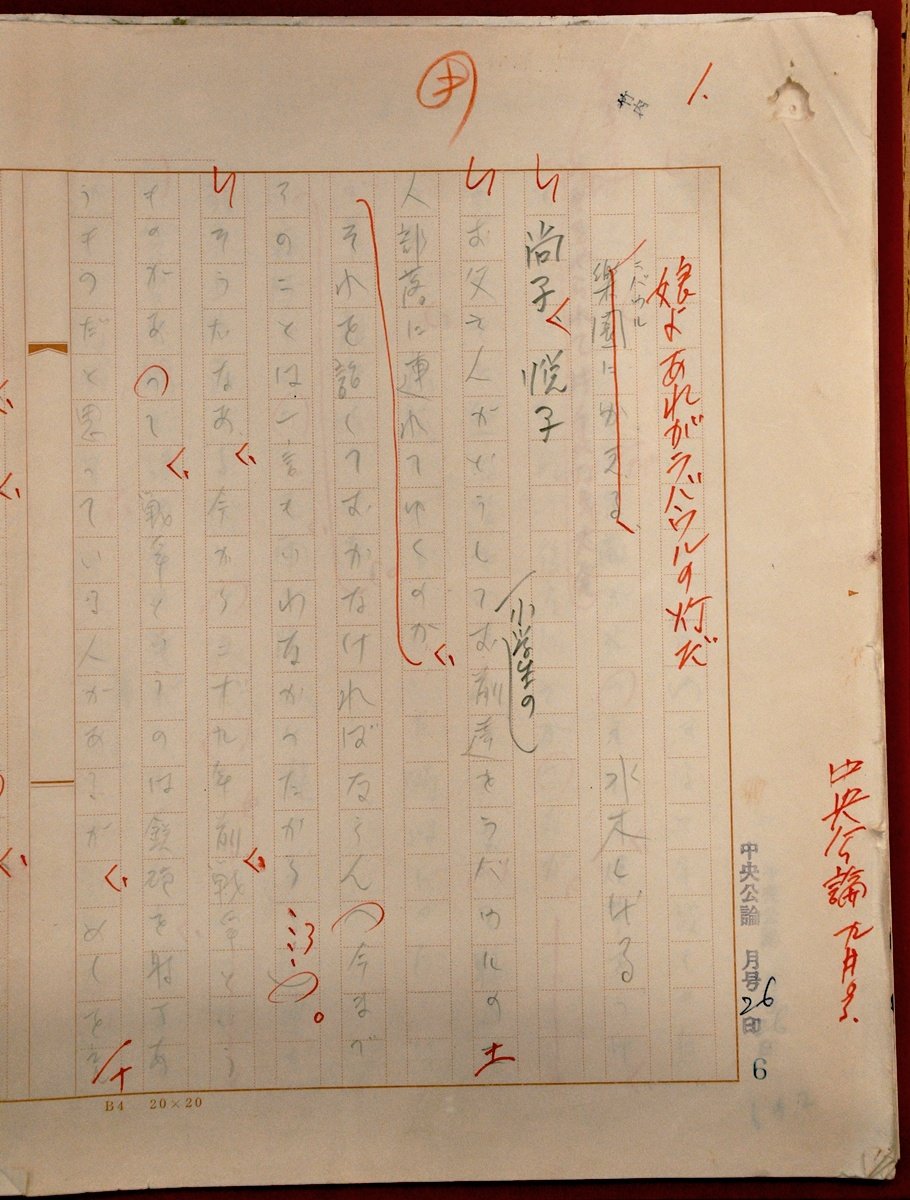 1.
中央公論九月号
中央公論 月号
26
印
6
娘よあれがラバウルの灯だ
ラバウル
楽園にかえる
水木しげる
尚子、悦子
小学生の
お父さんがどうしてお前達をラバウルの土
人部落に連れてゆくのか、
それを話しておかなければならん今まで
そのことは一言も
なかったから
そうだなあ、今から二十九年前、戦争という
ものがあって、戦争というのは鉄砲を射ちあ
うものだと思っている人があるが、めしを
B4 20×20